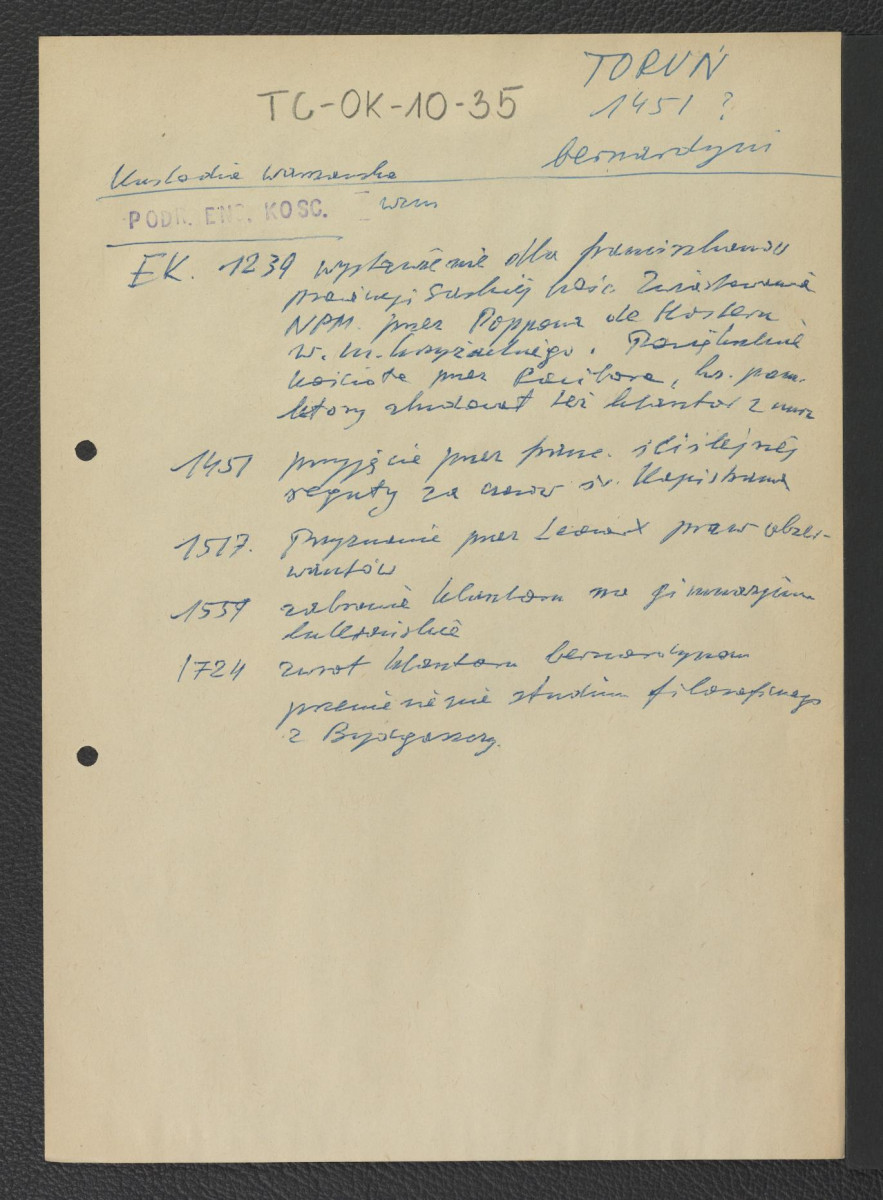 TORUŃ
TC-OK-10-35
1451 ?
bernardyni
Kustodia warszawska
PODR. ENC. KOŚC.
EK. 1239 wystawienie dla franciszkanów
prowincji saskiej kośc. Zwiastowania
NPM. przez Poppona de
w. m. krzyżackiego. Powiększenie
kościoła przez Racibora, ks. pom.
który zbudował też klasztor z muru
1451 przyjęcie przez franc. ściślejszej
reguły za czasów św. Kapistrana
1517. Przyznanie przez Leona X praw obser-
wantów
1559 zabranie klasztoru na gimnazjum
luterańskie
1724 zwrot klasztoru bernardynom
przeniesienie studium filozoficznego
z Bydgoszczy.